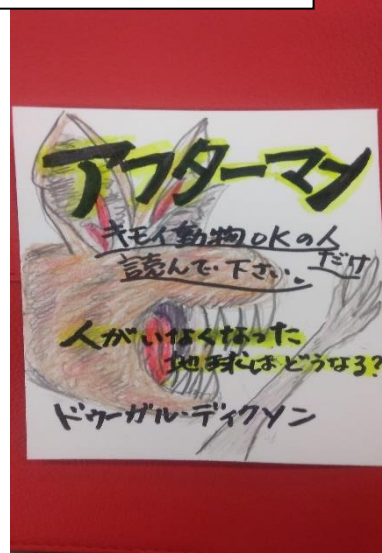 アフターマン
キモイ動物OKの人だけ
読んで下さい。
人がいなくなった
地球はどうなる?
ドゥーガル・ディクソン